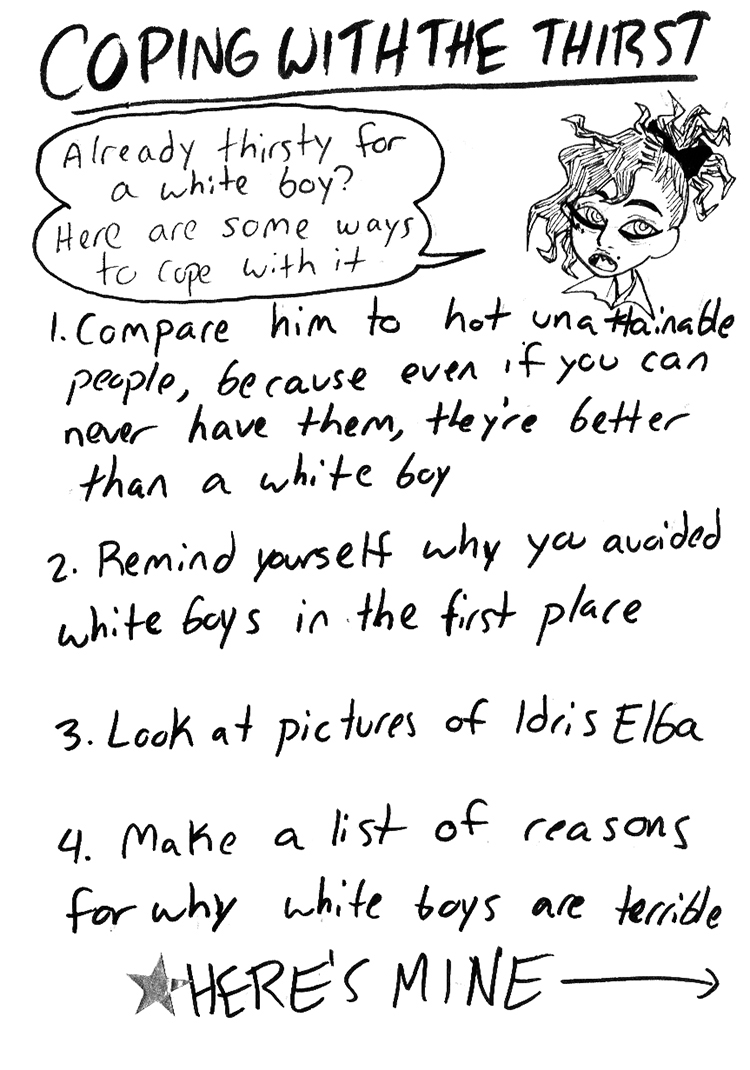 COPING WITH THE THIRST
Already thirsty for
a white boy?
Here are some ways
to cope with it
1. Compare him to hot unattainable
people, because even if you can
never have them, they're better
than a white boy
2. Remind yourself why you avoided
white boys in the first place
3. Look at pictures of Idris Elba
4. Make a list of reasons
for why white boys are terrible
HERE'S MINE